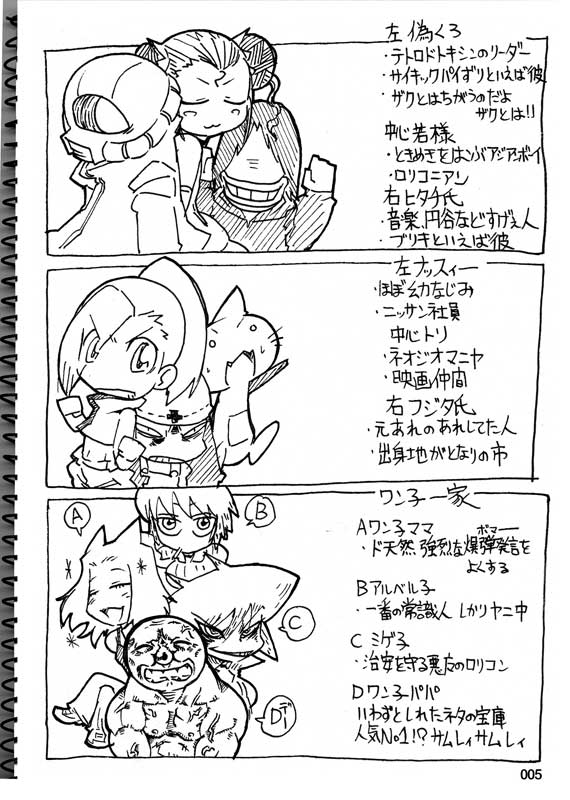 左 偽くろ
・テトロドトキシンのリーダー
・サイキックパイずりといえば彼
・ザクとはちがうのだよ
ザクとは!!
中心若様
・ときめきをはこぶアジアボーイ
・ロリコニアン
右ヒタチ氏
・音楽、円谷などすげえ人
・ブリキといえば彼
左ナッスィー
・ほぼ幼なじみ
・ニッサン社員
中心トリ
・ネオジオマニヤ
・映画仲間
右フジタ氏
・元あれのあれしてた人
・出身地がとなりの市
ワン子一家
A
B
C
D
Aワン子ママ
・ド天然、強烈な爆弾発言を
ボマー
よくする
Bアルベル子
・一番の常識人 しかしヤニ中
C ミゲ子
・治安を守る悪友のロリコン
Dワン子パパ
いわずとしれたネタの宝庫
人気No1!?サムレィサムレィ
005